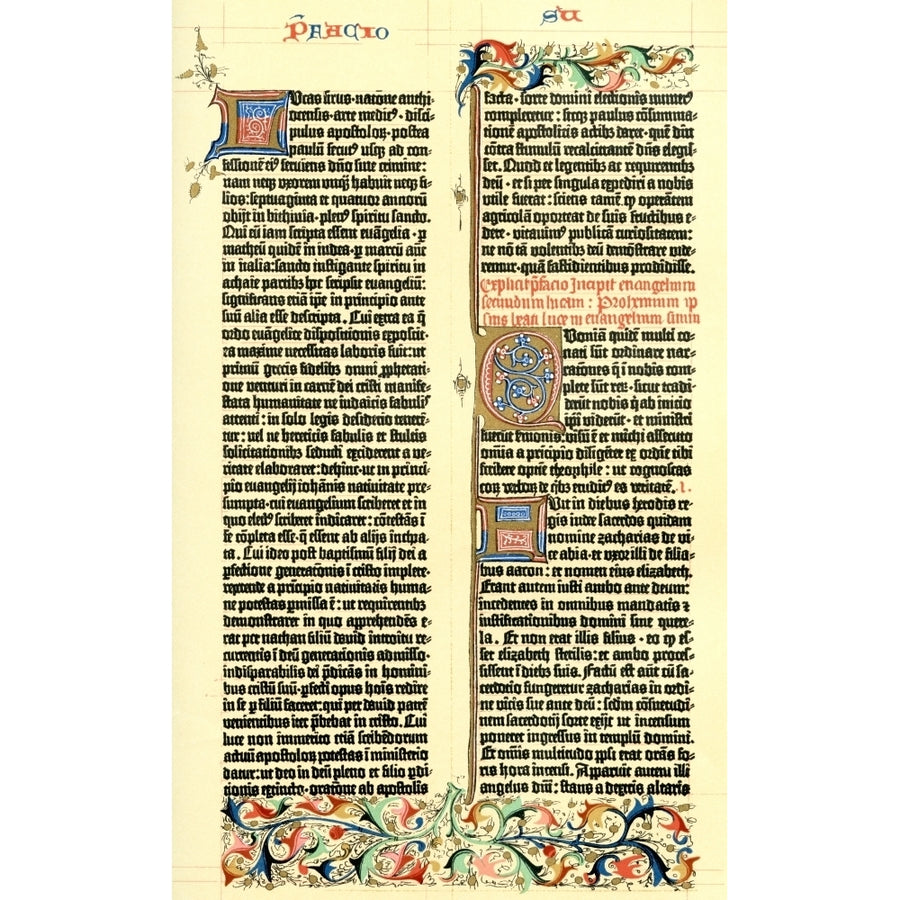 P̄FACIO
SU
LUcas sirus·natōne anthi-
ocensis·arte medicꝰ·disci-
pulus apostoloꝝ·postea
paulū secutꝰ usqꝫ ad con-
fessionē eiꝰ serviens dn̄o sine crimine:
nam neqꝫ uxorem unqꝫ̄ habuit neqꝫ fi-
lios: septuaginta et quatuor annorū
obijt in bithinia·plenꝰ spiritu sancto.
Qui cū iam scripta essent euāgelia·ꝑ
matheū quidē in iudea·ꝑ marcū aūt
in italia: sancto instigante spiritu in
achaie partibꝫ hoc scripsit euangeliū:
significans etiā ip̄e in principio ante
suū alia esse descripta. Cui extra ea q̄
ordo euāgelice dispositionis exposcit·
ea maxime necessitas laboris fuit: ut
primū grecis fidelibꝫ omni ꝓphetati-
one venturi in carnē dei cristi manife-
stata humanitate ne iudaicis fabulis
attenti: in solo legis desiderio tenerē-
tur: vel ne hereticis fabulis et stultis
solicitationibꝫ seducti exciderent a ve-
ritate elaboraret: dehinc·ut in princi-
pio euangelij iohānis nativitate pre-
sumpta·cui euangelium scriberet et in
quo electꝰ scriberet indicaret: cōtestās ī
se cōpleta esse·q̄ essent ab alijs inchoa-
ta. Cui ideo post baptismū filij dei a
ꝑfectione generatōnis ī cristo implete·
repetende a pricipio nativitatis huma-
ne potestas ꝑmissa ē: ut requirentibꝫ
demonstraret in quo apprehendēs e-
rat per nathan filiū david introitu re-
currentis ī deū generationis admisso·
indisparabilis dei p̄dicās in homini-
bus cristū suū·ꝑfecti opus hoīs redire
in se ꝑ filiū faceret: qui per david patrē
venientibus iter p̄bebat in cristo. Cui
luce non immerito etiā scribēdorum
actuū apostoloꝝ potestas ī ministerio
datur: ut deo in deū pleno et filio ꝓdi-
tionis extincto·oratōne ab apostolis
facta·sorte domini electionis numerꝰ
completetur: sicqꝫ paulus cōsumma-
tionē apostolicis actibꝫ daret·quē diu
cōtra stimulū recalcitrantē dn̄s elegis-
set. Quod et legentibꝫ ac requirentibꝫ
deū·et si per singula expediri a nobis
utile fuerat: sciens tamē ꝙ operātem
agricolā oporteat de suis fructibus e-
dere·vitavimꝰ publicā curiositatem:
ne nō tā volentibꝫ deū demōstrare vide-
remur·quā fastidientibus prodidisse.
Explicit p̄facio Incipit euangelium
secundum lucam: Prohemium ip-
sius beati luce in euangelium suum
QUoniā quidē multi co-
nati sūt ordinare nar-
ratōnes q̄ ī nobis com-
plete sūt reꝝ·sicut tradi-
derūt nobis q̄ ab inicio
ip̄i viderūt·et ministri
fuerūt s̄monis: visū ē et michi assecuto
omīa a pricipio diligēter ex ordīe tibi
scribere optīe theophile: ut cognoscas
eoꝝ verboꝝ de q̄bꝫ eruditꝰ es veritatē. I.
FUit in diebus herodis re-
gis iude sacerdos quidam
nomine zacharias de vi-
ce abia·et uxor illi de filia-
bus aaron: et nomen eius elizabeth.
Erant autem iusti ambo ante deum:
incedentes in omnibus mandatis ⁊
iustificationibus domini sine quere-
la. Et non erat illis filius·eo ꝙ es-
set elizabeth sterilis: et ambo proces-
sissent ī diebꝫ suis. Factū est aūt cū sa-
cerdotio fungeretur zacharias in ordi-
ne vicis sue ante deū: scdm cōsuetudi-
nem sacerdotij sorte exijt ut incensum
poneret ingressus in templū domini.
Et om̄is multitudo ppl̄i erat orās fo-
ris hora incensi. Apparuit autem illi
angelus dn̄i: stans a dextris altaris